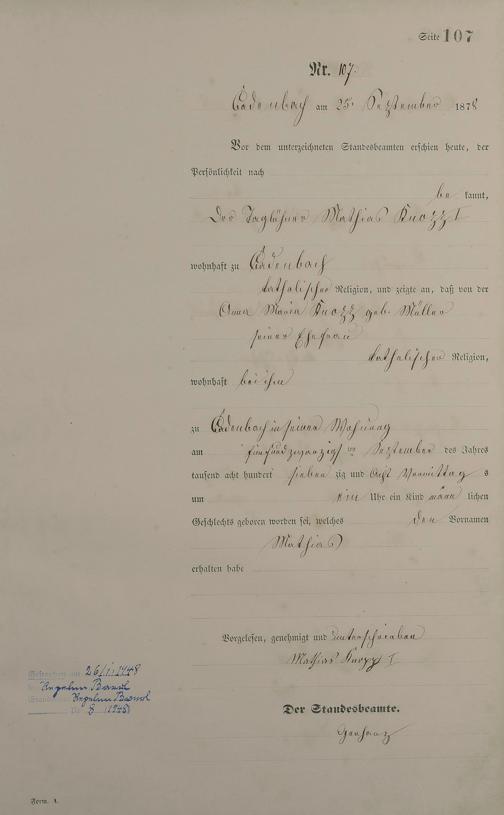 Seite 107
Nr. 107.
Cadenbach am 25. September 1878
Vor dem unterzeichneten Standesbeamten erschien heute, der
Persönlichkeit nach
be kannt,
der Taglöhner Mathias Knopp I
wohnhaft zu Cadenbach
katholischer Religion, und zeigte an, daß von der
Anna Maria Knopp geb. Müller
seiner Ehefrau
katholischer Religion,
wohnhaft bei ihm
zu Cadenbach in seiner Wohnung
am fünfundzwanzigsten September des Jahres
tausend acht hundert siebenzig und acht Vormittags
um ein Uhr ein Kind männlichen
Geschlechts geboren worden sei, welches den Vornamen
Mathias
erhalten habe
Vorgelesen, genehmigt und unterschrieben
Mathias Knopp I
Der Standesbeamte.
Gestorben am 26/1 1948
8 1948
Form. A.